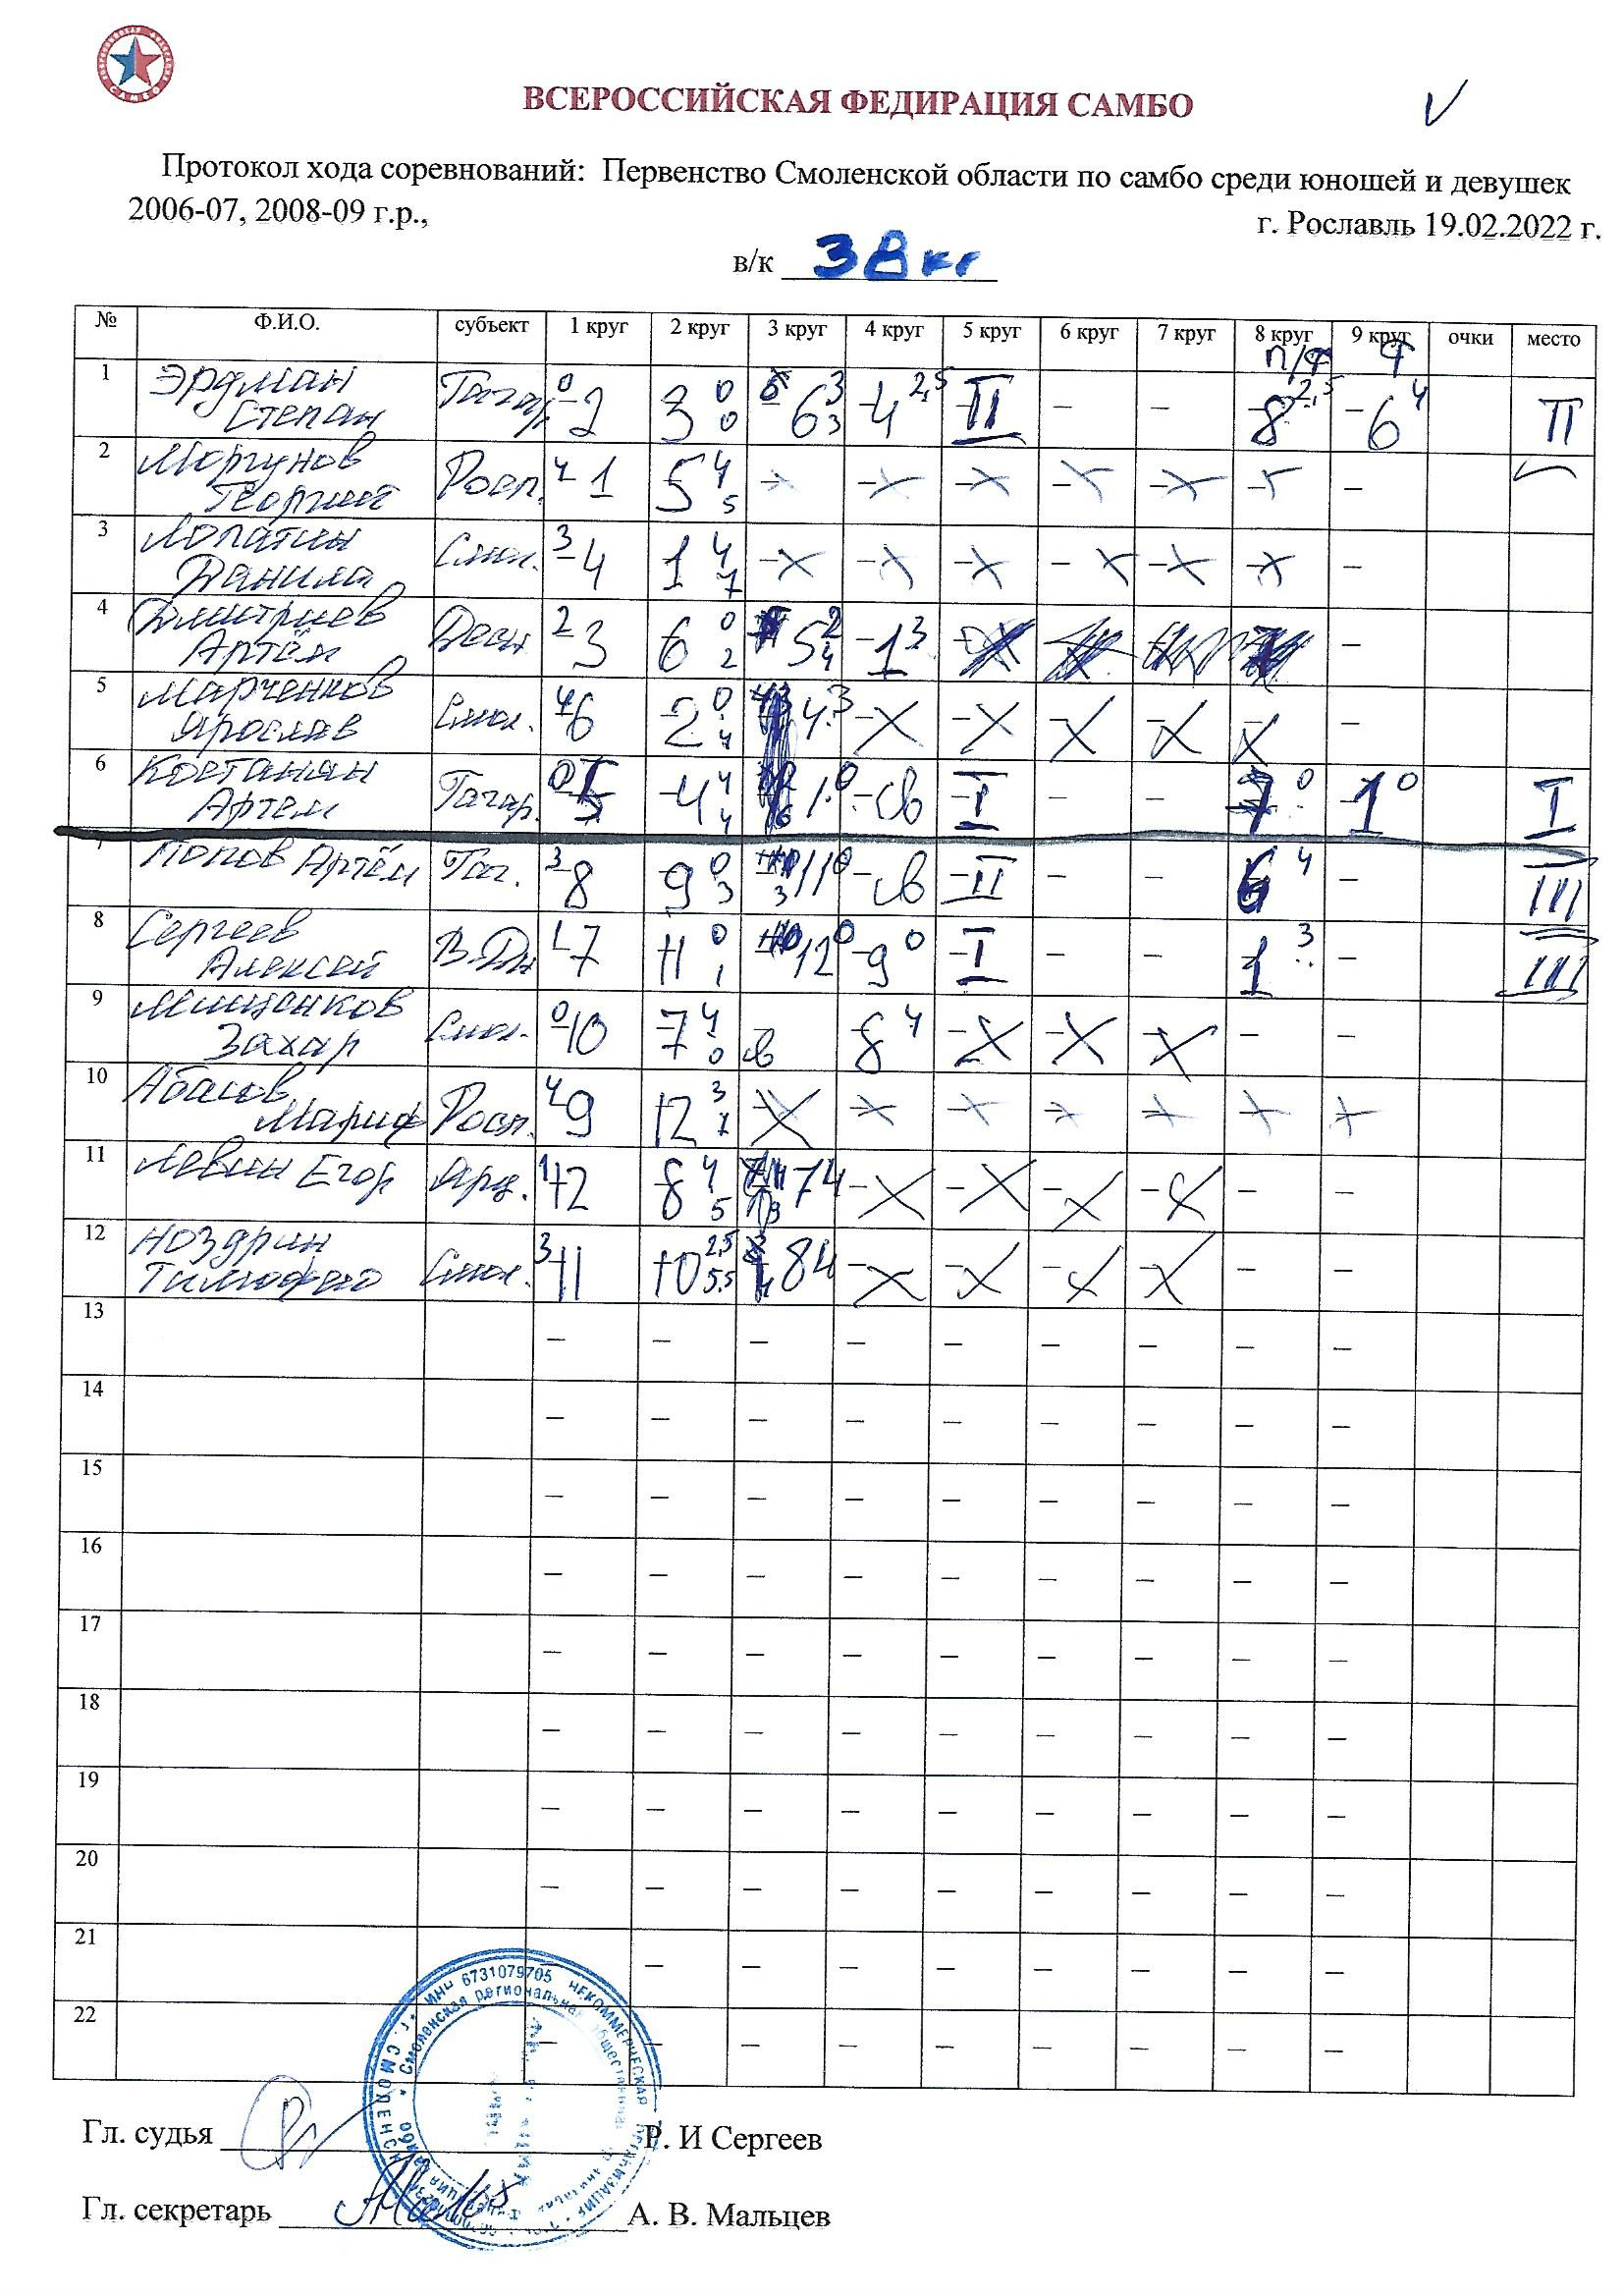 ВСЕРОССИЙСКАЯ ФЕДИРАЦИЯ САМБО
Протокол хода соревнований: Первенство Смоленской области по самбо среди юношей и девушек
2006-07, 2008-09 г.р., г. Рославль 19.02.2022 г.
в/к 38 кг
№ Ф.И.О. субъект 1 круг 2 круг 3 круг 4 круг 5 круг 6 круг 7 круг 8 круг 9 круг очки место
п/ф ф
1 Эрдман Степан Гагар. 0 -2 3 0 0 6 3 3 -4 2,5 II - - 8 2,5 -6 4 II
2 Моргунов Георгий Росл. 4 -1 5 4 5 -
3 Лопатин Данила Смол. 3 -4 1 4 7 -х -х -х -х -х -х -
4 Дмитриев Артём Десн 2 -3 6 0 2 5 2 4 -1 3 -
5 Марченков Ярослав Смол. 4 -6 -2 0 4 4 3 -х -х -х -х -х -
6 Костанян Артем Гагар. 0 5 -4 4 4 1 0 -св I - - 7 0 -1 0 I
7 Попов Артём Гаг. 3 -8 -9 0 3 11 0 -св -II - - 6 4 - III
8 Сергеев Алексей В.Дн 1 -7 11 0 1 12 0 -9 0 -I - - 1 3 - III
9 Мищенков Захар Смол. 0 -10 -7 4 0 св 8 4 -х -х -х - -
10 Абасов Мариф Росл. 4 -9 12 3 7 -х -х -х -х -х -х -х
11 Левин Егор Ярц. 1 -12 8 4 5 7 4 -х -х -х -х - -
12 Ноздрин Тимофей Смол. 3 -11 10 2,5 5.5 8 4 -х -х -х -х - -
13 - - - - - - - - -
14 - - - - - - - - -
15 - - - - - - - - -
16 - - - - - - - - -
17 - - - - - - - - -
18 - - - - - - - - -
19 - - - - - - - - -
20 - - - - - - - - -
21 - - - - - - - - -
22 - - - - - - - - -
ИНН 6731079705 НЕКОММЕРЧЕСКАЯ ОРГАНИЗАЦИЯ
Смоленская региональная общественная
Гл. судья Р. И Сергеев
Гл. секретарь А. В. Мальцев